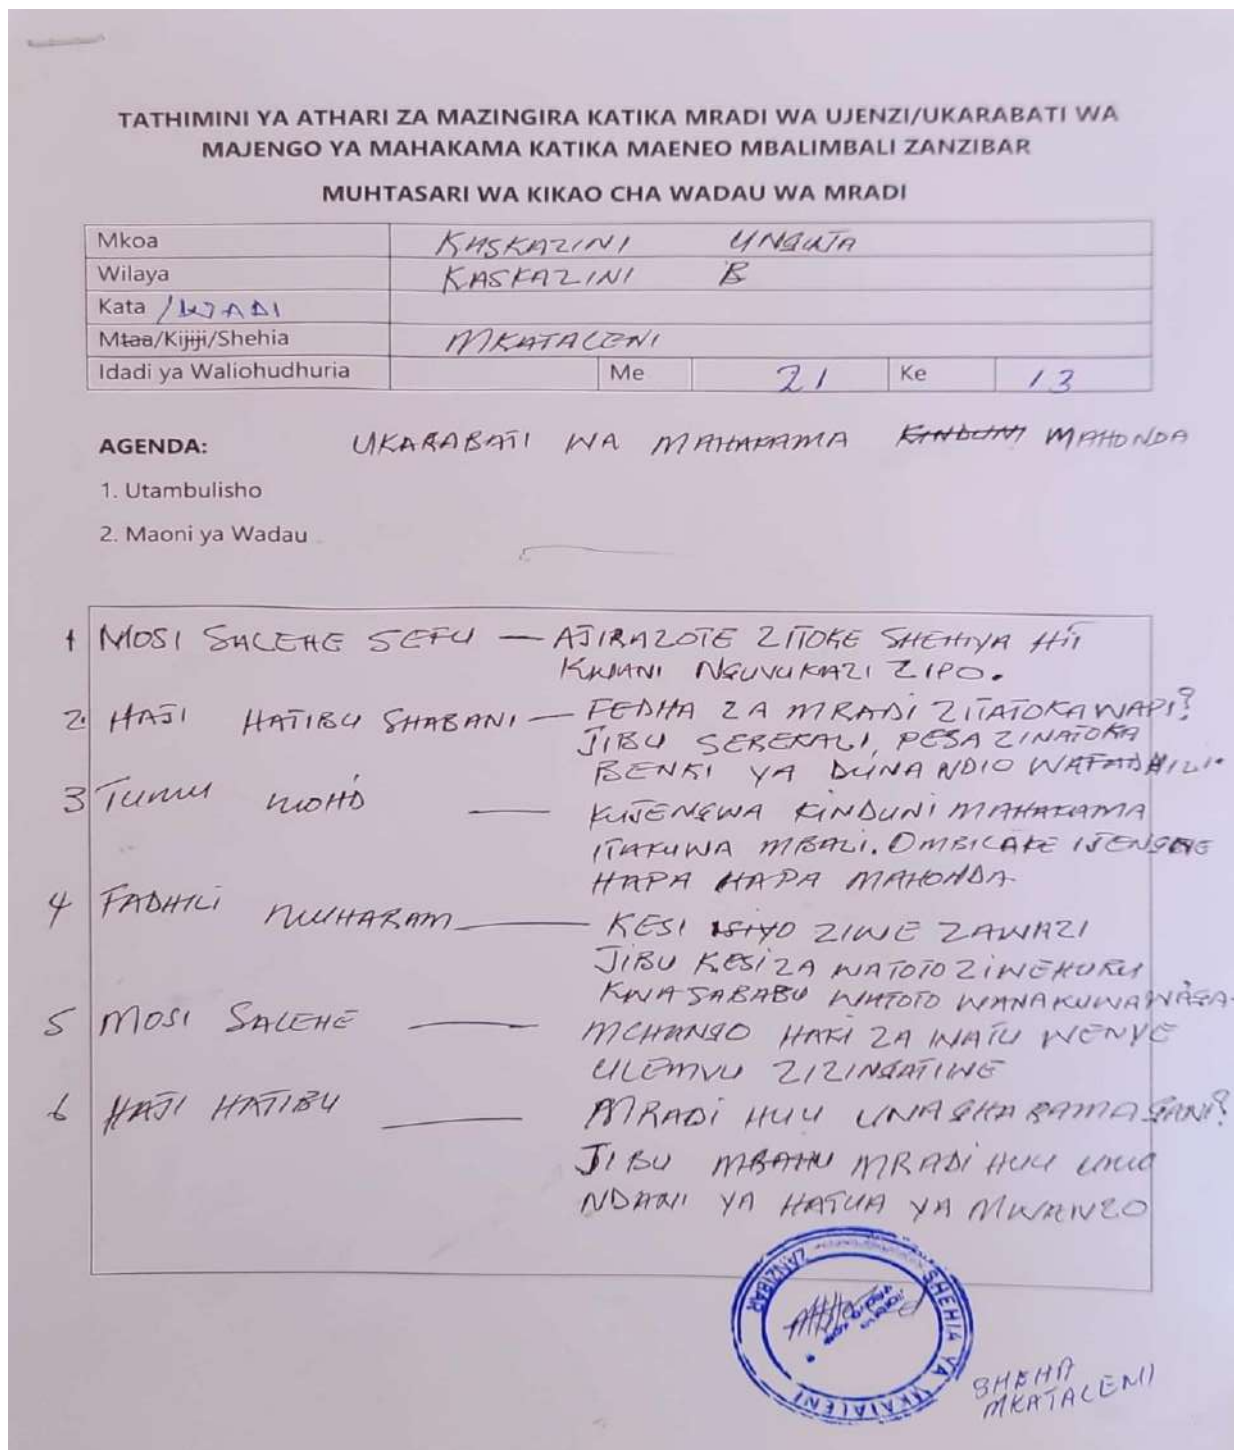 TATHIMINI YA ATHARI ZA MAZINGIRA KATIKA MRADI WA UJENZI/UKARABATI WA
MAJENGO YA MAHAKAMA KATIKA MAENEO MBALIMBALI ZANZIBAR
MUHTASARI WA KIKAO CHA WADAU WA MRADI
Mkoa KASKAZINI UNGUJA
Wilaya KASKAZINI B
Kata /WADI
Mtaa/Kijiji/Shehia MKATALENI
Idadi ya Waliohudhuria Me 21 Ke 13
AGENDA: UKARABATI WA MAHAKAMA KINDUNI MAHONDA
1. Utambulisho
2. Maoni ya Wadau
1 MOSI SALEHE SEFU — AJIRA ZOTE ZITOKE SHEHIYA HII
KWANI NGUVUKAZI ZIPO.
2. HAJI HATIBU SHABANI — FEDHA ZA MRADI ZITATOKA WAPI?
JIBU SEREKALI, PESA ZINATOKA
BENKI YA DUNA NDIO WAFADHILI.
3 TUMU MOHD — KUJENGWA KINDUNI MAHAKAMA
ITAKUWA MBALI. OMBI LAKE IJENGWE
HAPA HAPA MAHONDA
4 FADHILI MUHARAM — KESI ISIYO ZIWE ZAWAZI
JIBU KESI ZA WATOTO ZIWE HURU
KWA SABABU WATOTO WANAKUWA WASA
5 MOSI SALEHE — MCHANGO HAKI ZA WATU WENYE
ULEMVU ZIZINGATIWE
6 HAJI HATIBU — MRADI HUU UNA GHARAMA GANI?
JIBU MRADI HUU UKO
NDANI YA HATUA YA MWANZO
SHEHIA YA MKATALENI
ZANZIBAR
SHEHA
MKATALENI